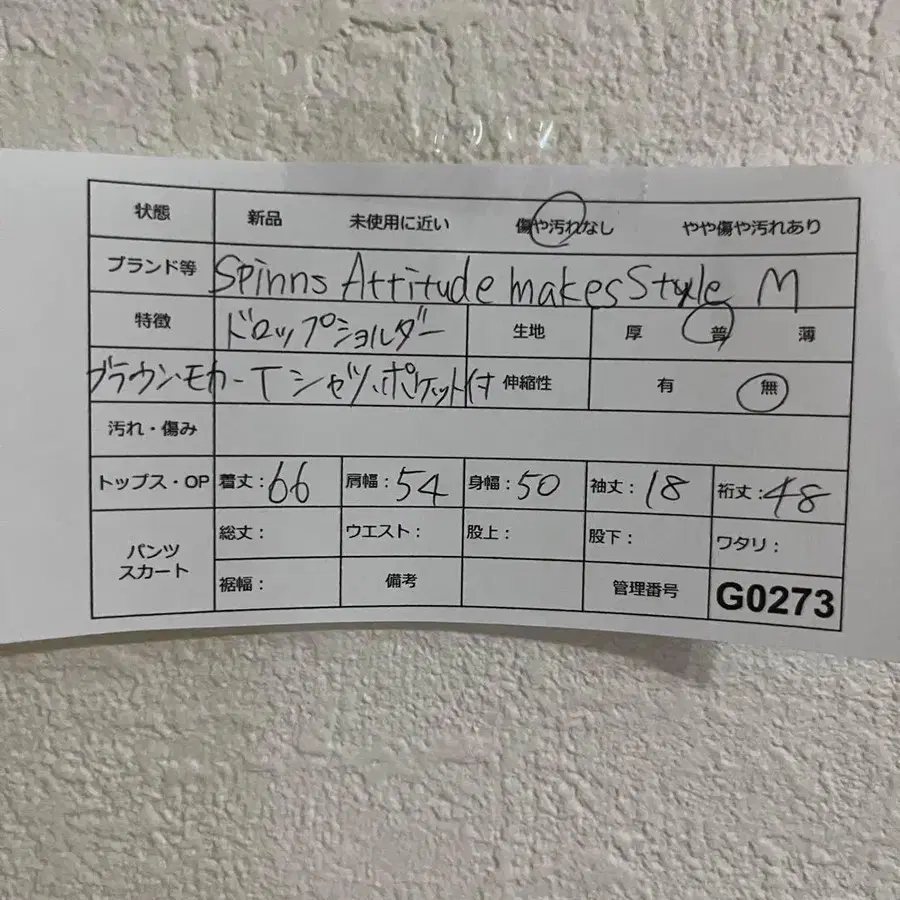 状態 新品 未使用に近い 傷や汚れなし やや傷や汚れあり
ブランド等 Spinns Attitude makes Style M
特徴 ドロップショルダー 生地 厚 普 薄
ブラウン・モカーTシャツ、ポケット付 伸縮性 有 無
汚れ・傷み
トップス・OP 着丈:66 肩幅:54 身幅:50 袖丈:18 裄丈:48
パンツ 総丈: ウエスト: 股上: 股下: ワタリ:
スカート 裾幅: 備考 管理番号 G0273